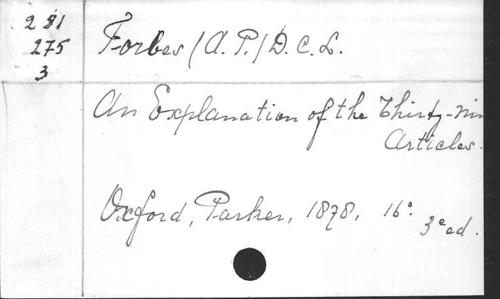 281
275
3
Forbes (A. P.) D. C. L.
An Explanation of the Thirty-nin
Articles.
Oxford, Parker, 1878, 16º. 3e ed.